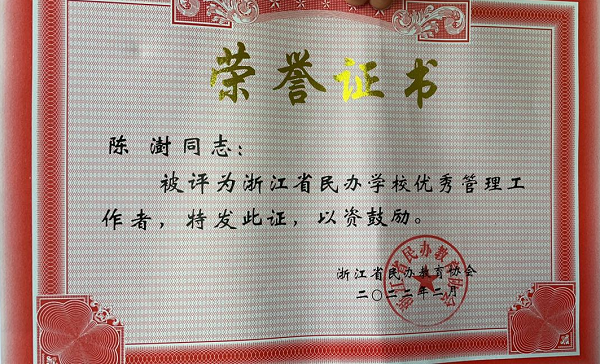 荣誉证书
陈澍同志：
被评为浙江省民办学校优秀管理工
作者，特发此证，以资鼓励。
浙江省民办教育协会
二〇二二年二月
浙江省民办教育协会